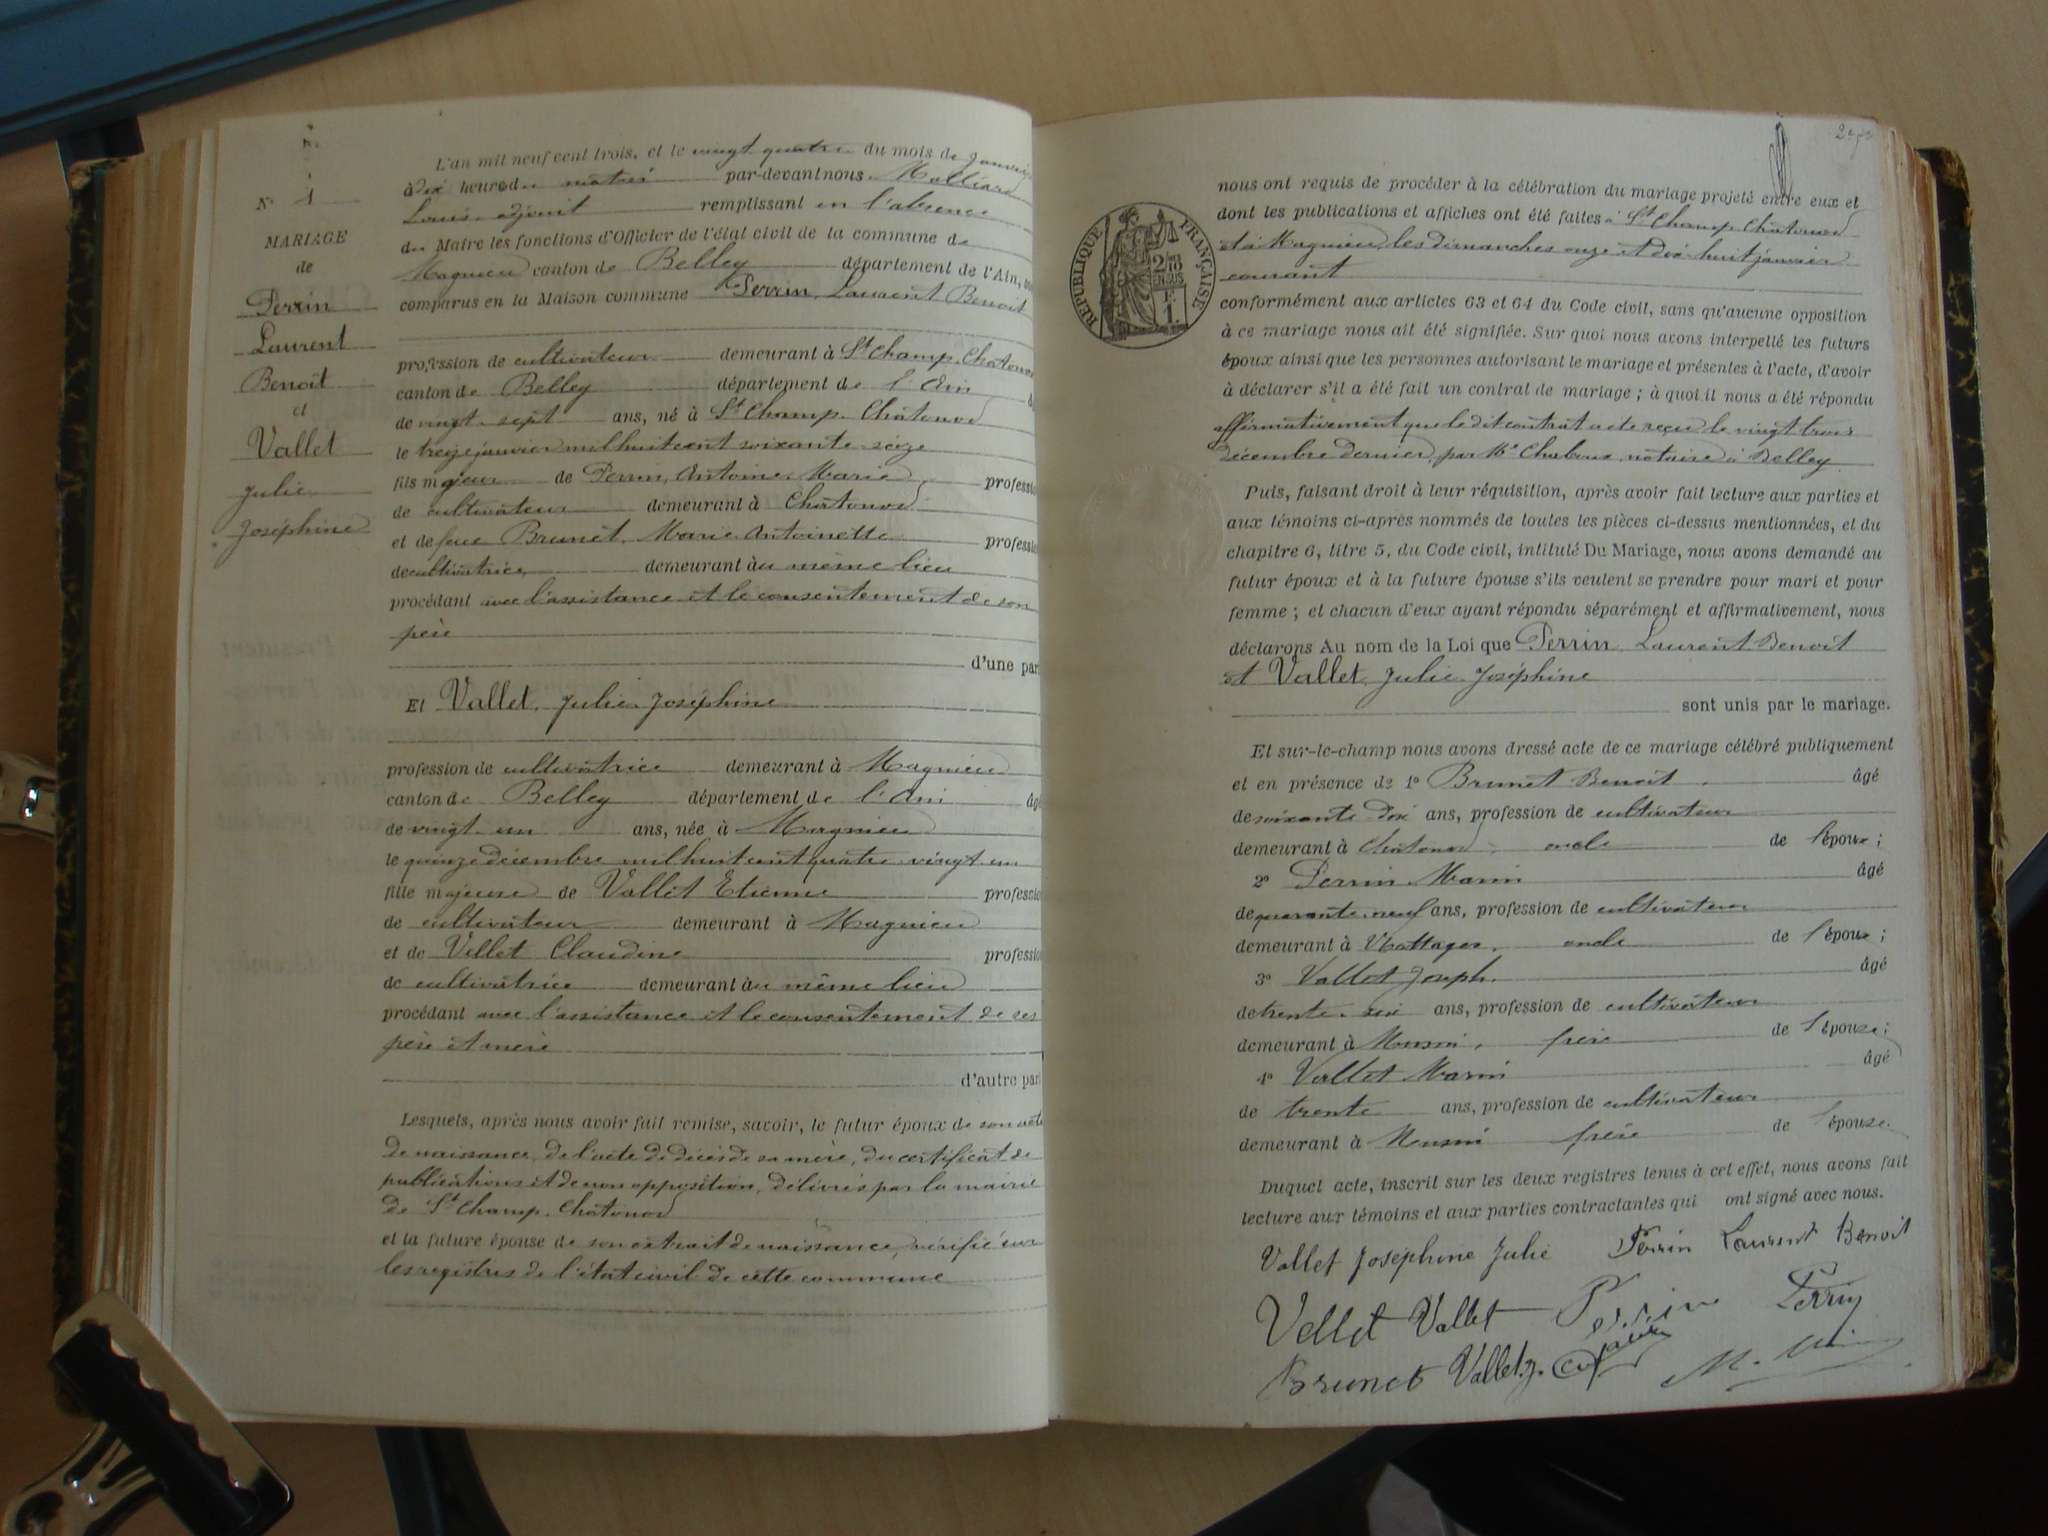 N° 1
MARIAGE
de
Perrin
Laurent
Benoit
et
Vallet
Julie
Joséphine
L'an mil neuf cent trois, et le vingt quatre du mois de Janvier
à dix heures du matin par-devant nous
Louis adjoint remplissant en l'absence
du Maire les fonctions d'Officier de l'état civil de la commune de
Magnieu canton de Belley département de l'Ain, sont
comparus en la Maison commune Perrin, Laurent Benoit
profession de cultivateur demeurant à St Champ-Chatonod
canton de Belley département de l'Ain
de vingt-sept ans, né à St Champ-Chatonod
le treize janvier mil huit cent soixante-seize
fils majeur de Perrin, Antoine Marie profession
de cultivateur demeurant à Chatonod
et de feue Brunet, Marie Antoinette profession
de cultivatrice demeurant au même lieu
procédant avec l'assistance et le consentement de son
père
d'une part
Et Vallet, Julie Joséphine
profession de cultivatrice demeurant à Magnieu
canton de Belley département de l'Ain âgé
de vingt-un ans, née à Magnieu
le quinze décembre mil huit cent quatre-vingt-un
fille majeure de Vallet Etienne profession
de cultivateur demeurant à Magnieu
et de Vellet Claudine profession
de cultivatrice demeurant au même lieu
procédant avec l'assistance et le consentement de ses
père et mère
d'autre part
Lesquels, après nous avoir fait remise, savoir, le futur époux de son acte
de naissance, de l'acte de décès de sa mère, du certificat de
publications et de non opposition, délivrés par la mairie
de St Champ-Chatonod
et la future épouse de son extrait de naissance, vérifié sur
les registres de l'état civil de cette commune
RÉPUBLIQUE FRANÇAISE
2/10
EN SUS
1F.
nous ont requis de procéder à la célébration du mariage projeté entre eux et
dont les publications et affiches ont été faites à St Champ-Chatonod
et à Magnieu, les dimanches onze et dix-huit janvier
courant
conformément aux articles 63 et 64 du Code civil, sans qu'aucune opposition
à ce mariage nous ait été signifiée. Sur quoi nous avons interpellé les futurs
époux ainsi que les personnes autorisant le mariage et présentes à l'acte, d'avoir
à déclarer s'il a été fait un contrat de mariage ; à quoi il nous a été répondu
affirmativement que le dit contrat a été reçu le vingt trois
décembre dernier, par Me notaire à Belley
Puis, faisant droit à leur réquisition, après avoir fait lecture aux parties et
aux témoins ci-après nommés de toutes les pièces ci-dessus mentionnées, et du
chapitre 6, titre 5, du Code civil, intitulé Du Mariage, nous avons demandé au
futur époux et à la future épouse s'ils veulent se prendre pour mari et pour
femme ; et chacun d'eux ayant répondu séparément et affirmativement, nous
déclarons Au nom de la Loi que Perrin Laurent Benoit
et Vallet, Julie Joséphine
sont unis par le mariage.
Et sur-le-champ nous avons dressé acte de ce mariage célébré publiquement
et en présence de 1° Brunet Benoit âgé
de soixante-dix ans, profession de cultivateur
demeurant à Chatonod oncle de l'époux ;
2° Perrin Marin âgé
de quarante-neuf ans, profession de cultivateur
demeurant à oncle de l'époux ;
3° Vallet Joseph âgé
de trente-six ans, profession de cultivateur
demeurant à frère de l'épouse ;
4° Vallet Marin âgé
de trente ans, profession de cultivateur
demeurant à frère de l'épouse.
Duquel acte, inscrit sur les deux registres tenus à cet effet, nous avons fait
lecture aux témoins et aux parties contractantes qui ont signé avec nous.
Vallet Joséphine Julie Perrin Laurent Benoit
Vellet Vallet Perrin Perrin
Brunet Vallet J.